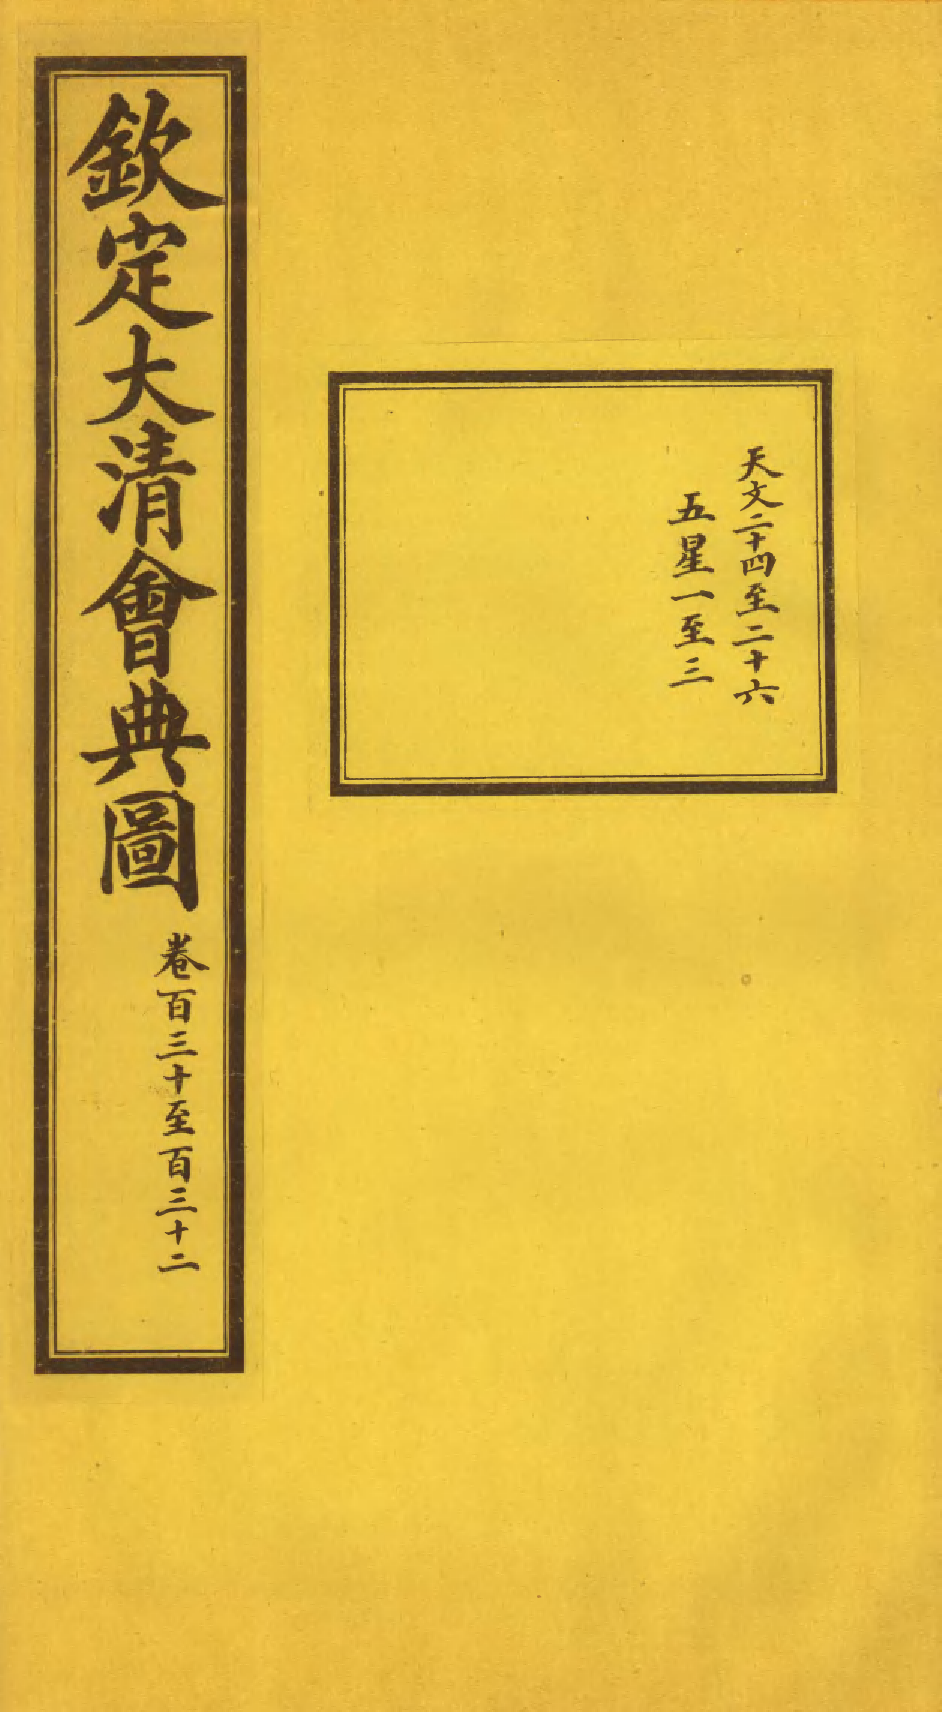 天文二十四至二十六
五星一至三
欽定大清會典圖
卷百三十至百三十二